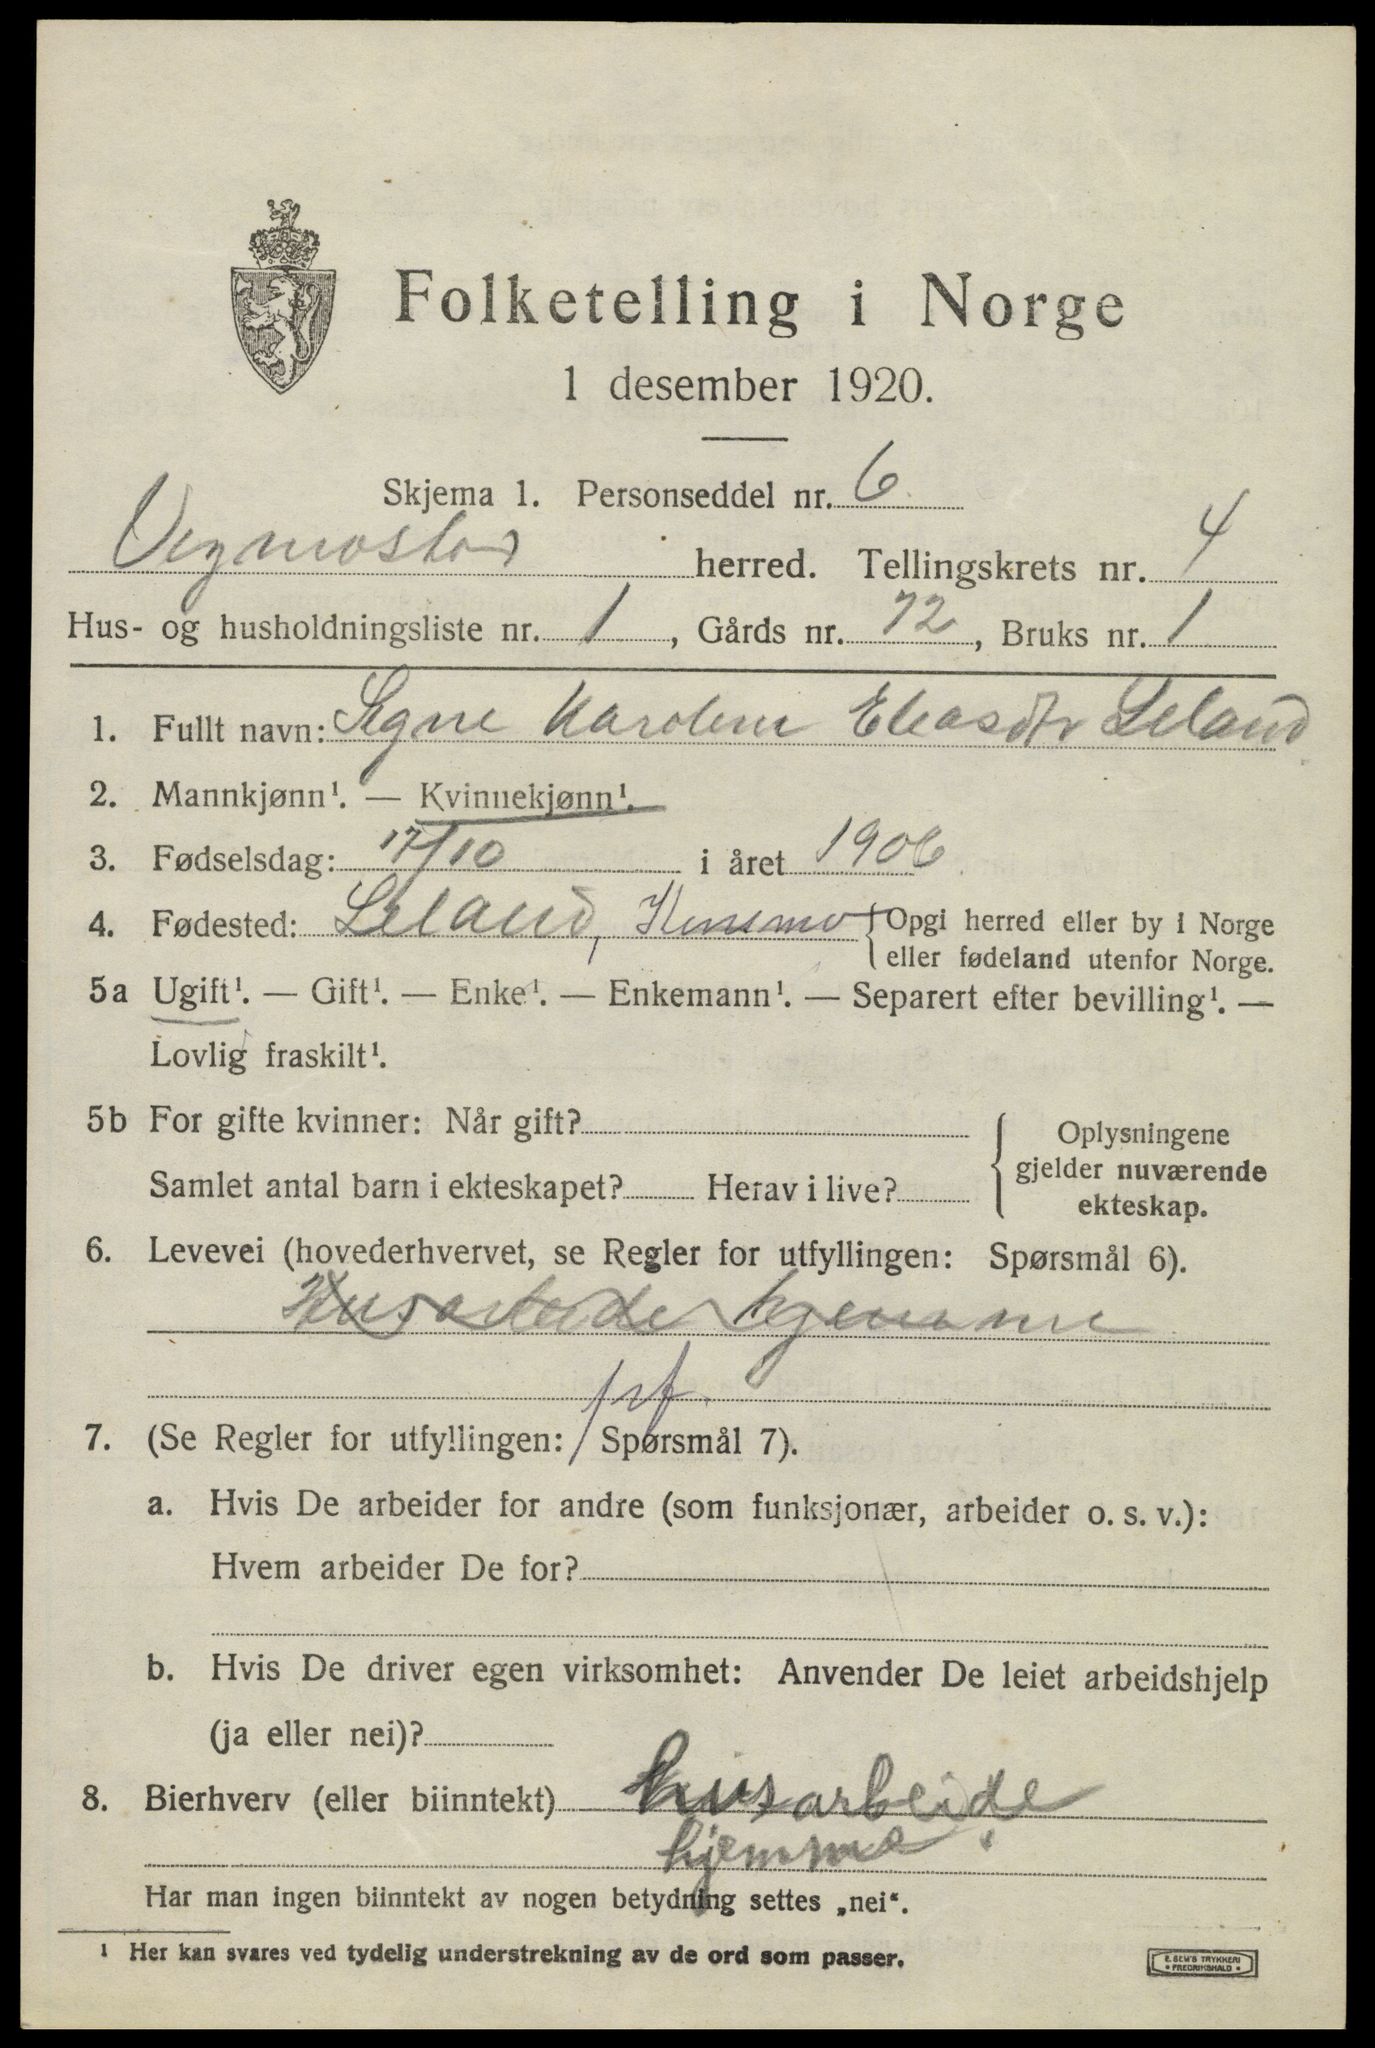 Folketelling i Norge
1 desember 1920.
Skjema 1. Personseddel nr. 6
Vigmostad herred. Tellingskrets nr. 4
Hus- og husholdningsliste nr. 1, Gårds nr. 72, Bruks nr. 1
1. Fullt navn: Signe Karoline Eliasdtr Leland
2. Mannkjønn¹. — Kvinnekjønn¹.
3. Fødselsdag: 17/10 i året 1906
4. Fødested: Leland, {Opgi herred eller by i Norge
eller fødeland utenfor Norge.
5a Ugift¹. — Gift¹. — Enke¹. — Enkemann¹. — Separert efter bevilling¹. —
Lovlig fraskilt¹.
5b For gifte kvinner: Når gift?
Samlet antal barn i ekteskapet? Herav i live?
Oplysningene
gjelder nuværende
ekteskap.
6. Levevei (hovederhvervet, se Regler for utfyllingen: Spørsmål 6).
Husarbeide hjemme
7. (Se Regler for utfyllingen: Spørsmål 7).
a. Hvis De arbeider for andre (som funksjonær, arbeider o. s. v.):
Hvem arbeider De for?
b. Hvis De driver egen virksomhet: Anvender De leiet arbeidshjelp
(ja eller nei)?
8. Bierhverv (eller biinntekt) husarbeide
hjemme
Har man ingen biinntekt av nogen betydning settes „nei“.
¹ Her kan svares ved tydelig understrekning av de ord som passer.
E. SEM'S TRYKKERI
• FREDRIKSHALD •